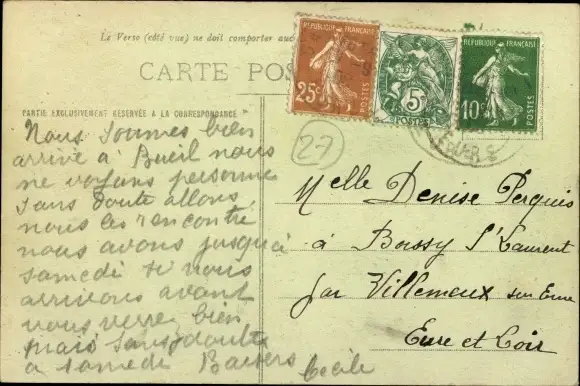 Le Verso (côté vue) ne doit comporter auc
CARTE POS
PARTIE EXCLUSIVEMENT RÉSERVÉE A LA CORRESPONDANCE
REPUBLIQUE FRANÇAISE
25c
POSTES
5c
POSTES
REPUBLIQUE FRANÇAISE
10c
POSTES
27
Nous sommes bien
arrivé à Bueil nous
ne voyons personne
sans doute allons
nous les rencontre
nous avons jusqu'à
samedi si nous
arrivons avant
vous verre bien
mais sans doute
a samedi Baisers Cecile
Melle Denise Perquis
à Boissy St Laurent
par Villemeux sur Eure
Eure et Loir